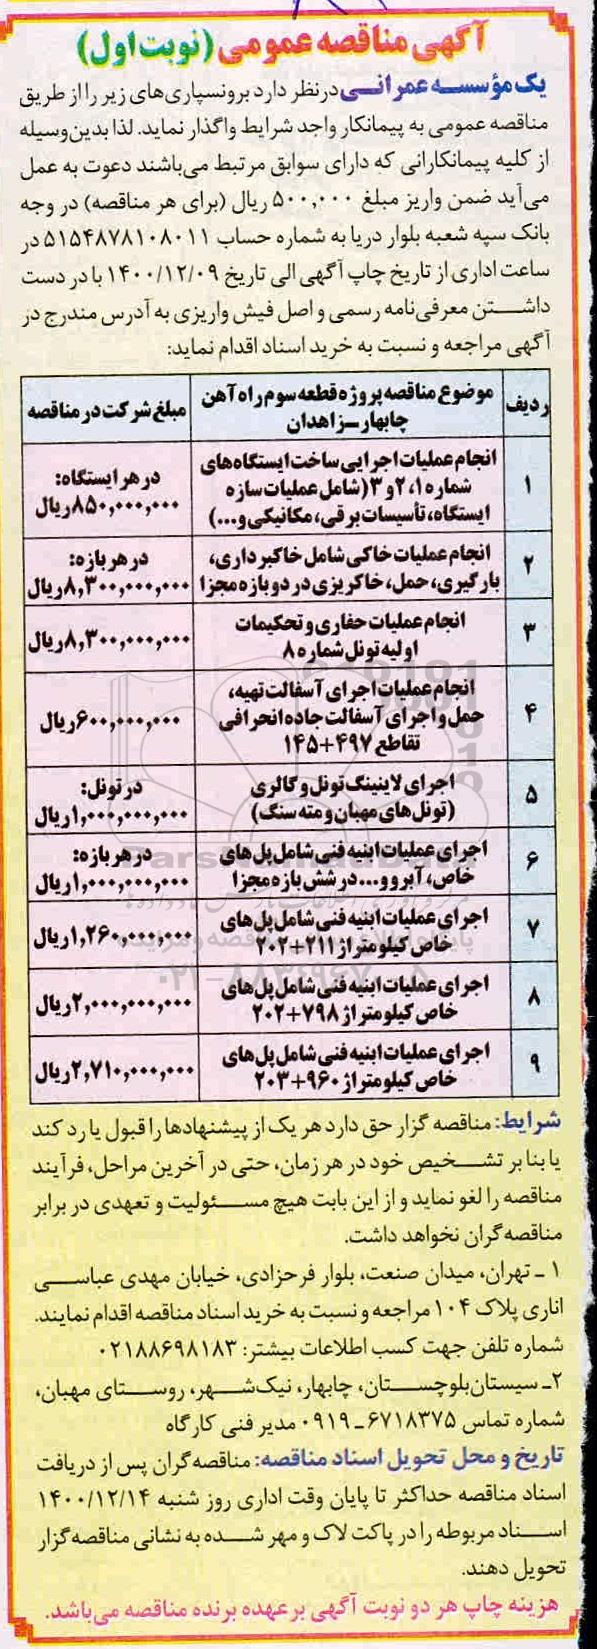 آگهی مناقصه عمومی (نوبت اول)
یک مؤسسه عمرانی درنظر دارد برونسپاری‌های زیر را از طریق
مناقصه عمومی به پیمانکار واجد شرایط واگذار نماید. لذا بدین‌وسیله
از کلیه پیمانکارانی که دارای سوابق مرتبط می‌باشند دعوت به عمل
می‌آید ضمن واریز مبلغ ۵۰۰,۰۰۰ ریال (برای هر مناقصه) در وجه
بانک سپه شعبه بلوار دریا به شماره حساب ۵۱۵۴۸۷۸۱۰۸۰۱۱ در
ساعت اداری از تاریخ چاپ آگهی الی تاریخ ۱۴۰۰/۱۲/۰۹ با در دست
داشتن معرفی‌نامه رسمی و اصل فیش واریزی به آدرس مندرج در
آگهی مراجعه و نسبت به خرید اسناد اقدام نماید:
ردیف
موضوع مناقصه پروژه قطعه سوم راه آهن
چابهار ـ زاهدان
مبلغ شرکت در مناقصه
۱
انجام عملیات اجرایی ساخت ایستگاه‌های
شماره ۱، ۲ و ۳ (شامل عملیات سازه
ایستگاه، تأسیسات برقی، مکانیکی و...)
در هر ایستگاه:
۸۵۰,۰۰۰,۰۰۰ ریال
۲
انجام عملیات خاکی شامل خاکبرداری،
بارگیری، حمل، خاکریزی در دو بازه مجزا
در هر بازه:
۸,۳۰۰,۰۰۰,۰۰۰ ریال
۳
انجام عملیات حفاری و تحکیمات
اولیه تونل شماره ۸
۸,۳۰۰,۰۰۰,۰۰۰ ریال
۴
انجام عملیات اجرای آسفالت تهیه،
حمل و اجرای آسفالت جاده انحرافی
تقاطع ۴۹۷+۱۴۵
۶۰۰,۰۰۰,۰۰۰ ریال
۵
اجرای لاینینگ تونل و گالری
(تونل‌های مهبان و مته سنگ)
در تونل:
۱,۰۰۰,۰۰۰,۰۰۰ ریال
۶
اجرای عملیات ابنیه فنی شامل پل‌های
خاص، آبرو و... در شش بازه مجزا
در هر بازه:
۱,۰۰۰,۰۰۰,۰۰۰ ریال
۷
اجرای عملیات ابنیه فنی شامل پل‌های
خاص کیلومتراژ ۲۱۱+۲۰۲
۱,۲۶۰,۰۰۰,۰۰۰ ریال
۸
اجرای عملیات ابنیه فنی شامل پل‌های
خاص کیلومتراژ ۷۹۸+۲۰۲
۲,۰۰۰,۰۰۰,۰۰۰ ریال
۹
اجرای عملیات ابنیه فنی شامل پل‌های
خاص کیلومتراژ ۹۶۰+۲۰۳
۲,۷۱۰,۰۰۰,۰۰۰ ریال
شرایط: مناقصه گزار حق دارد هر یک از پیشنهادها را قبول یا رد کند
یا بنا بر تشخیص خود در هر زمان، حتی در آخرین مراحل، فرآیند
مناقصه را لغو نماید و از این بابت هیچ مسئولیت و تعهدی در برابر
مناقصه‌گران نخواهد داشت.
۱ ـ تهران، میدان صنعت، بلوار فرحزادی، خیابان مهدی عباسی
اناری پلاک ۱۰۴ مراجعه و نسبت به خرید اسناد مناقصه اقدام نمایند.
شماره تلفن جهت کسب اطلاعات بیشتر: ۰۲۱۸۸۶۹۸۱۸۳
۲ـ سیستان‌بلوچستان، چابهار، نیک‌شهر، روستای مهبان،
شماره تماس ۶۷۱۸۳۷۵ ـ ۰۹۱۹ مدیر فنی کارگاه
تاریخ و محل تحویل اسناد مناقصه: مناقصه‌گران پس از دریافت
اسناد مناقصه حداکثر تا پایان وقت اداری روز شنبه ۱۴۰۰/۱۲/۱۴
اسناد مربوطه را در پاکت لاک و مهر شده به نشانی مناقصه‌گزار
تحویل دهند.
هزینه چاپ هر دو نوبت آگهی بر عهده برنده مناقصه می‌باشد.